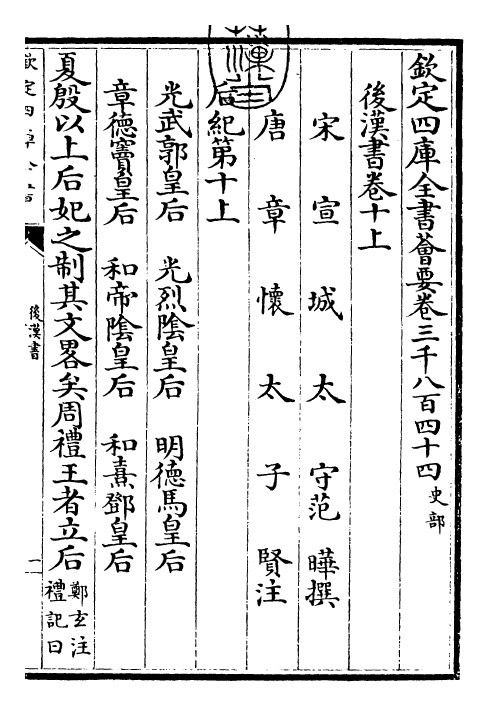 欽定四庫全書薈要卷三千八百四十四 史部
後漢書卷十上
宋宣城太守范曄撰
唐章懷太子賢注
后紀第十上
光武郭皇后 光烈陰皇后 明德馬皇后
章德竇皇后 和帝陰皇后 和熹鄧皇后
夏殷以上后妃之制其文畧矣周禮王者立后 鄭玄注
禮記曰
欽定四庫全書
後漢書
一